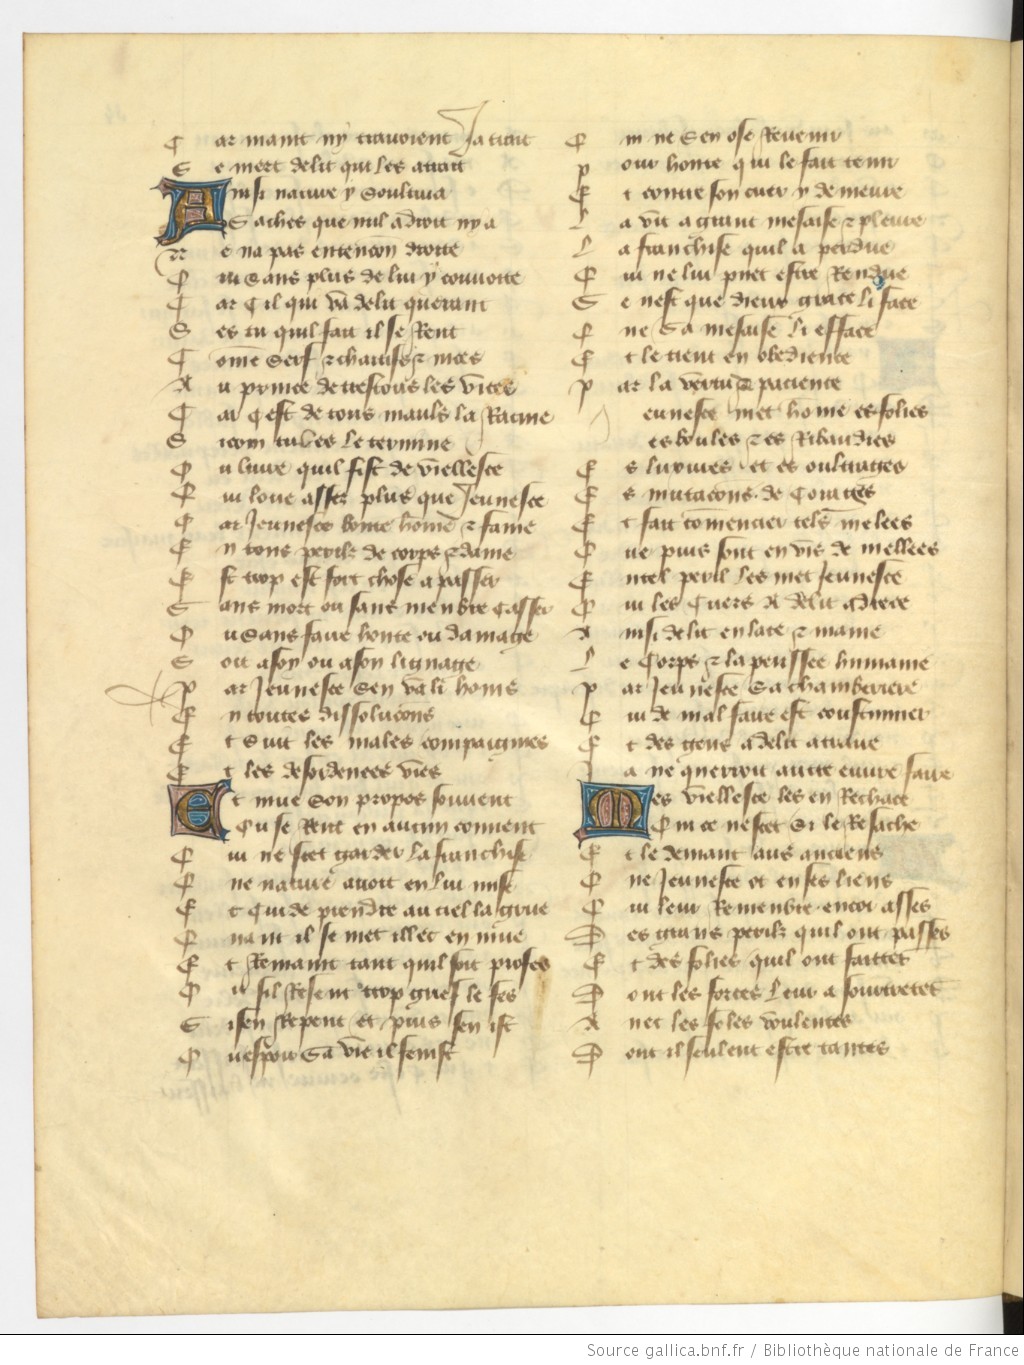 Car maint ny trauoient Ja tirait
Se mert delit qui les atirait
Ainsi nature y soultiua
Saches que nul adroit ny a
Ne na pas entencon droitte
Qui sans plus delui y couuoitte
Car Cil qui va delit querant
Ses tu quil fait il se Rent
Come Serf & chaitifz & nices
Au prince de trestous les vices
Car Cest de tous mauls la Racine
Sicom tulles le termine
Ou liure quil fist de viellesce
Qui loue assez plus que Jeunesce
Car Jeunesce boute home & fame
En tous perilz de corps & dame
Et trop est fort chose a passer
Sans mort ou sans menbre Casser
Ou Sans faire honte ou damage
Soit a soy ou a son lignage
Par Jeunesce Sen va li homs
En toutes dissolucons
Et Suit les males compaignies
Et les desordenees vies
Et mue Son propos souuent
Ou se Rent en aucun conuent
Qui ne scet garder la franchise
Que nature auoit en lui mise
Et Cuide prendre au ciel la grue
Quant il se met illec en mue
Et Remaint tant quil soit profes
Ou sil Resent trop grief le fes
Sisen Repent et puis sen ist
Ou espoir Sa vie il fenist
Qui ne Sen ose Reuenir
Pour honte qui le fait tenir
Et contre son cuer y demeure
La vit a grant mesaise & pleure
La franchise quil a perdue
Qui ne lui puet estre Rendue
Se nest que dieux grace li face
Que Sa mesaise li efface
Et le tient en obedience
Par la vertu de pacience
Jeunesce met home es folies
Es boules & es Ribaudies
Es luxures et es oultrages
Es mutacons de Courages
Et fait comencier telz melees
Que puis sont en vis de mellees
En tel peril les met Jeunesce
Qui les Cuers A delit adrece
Ainsi delit enlace & maine
Le Corps & la penssee humaine
Par Jeunesce Sa chamberiere
Qui de mal faire est coustumiere
Et des gens a delit attraire
Ja ne querroit autre euure faire
Mes viellesce les en Rechace
Qui ce ne scet Si le Resache
Et le demant aus anciens
Que Jeunesce ot en ses liens
Qui leur Remenbre encor asses
Des grans perilz quil ont passes
Et des folies quil ont faittes
Dont les forces leur a sourtretes
Auec les foles voulentes
Dont il seulent estre tantes
Source gallica.bnf.fr / Bibliothèque nationale de France